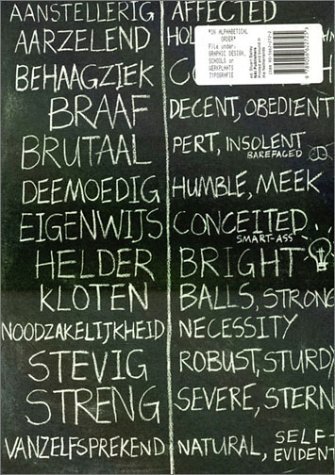 AANSTELLERIG AFFECTED
AARZELEND
BEHAAGZIEK
"IN ALPHABETICAL
ORDER"
File under:
GRAPHIC DESIGN,
SCHOOLS or
WERKPLAATS
TYPOGRAFIE
BRAAF DECENT, OBEDIENT
BRUTAAL PERT, INSOLENT
BAREFACED
DEEMOEDIG HUMBLE, MEEK
EIGENWIJS CONCEITED
SMART-ASS
HELDER BRIGHT
KLOTEN BALLS, STRONG
NOODZAKELIJKHEID NECESSITY
STEVIG ROBUST, STURD
STRENG SEVERE, STERN
VANZELFSPREKEND NATURAL, SELF-
EVIDENT